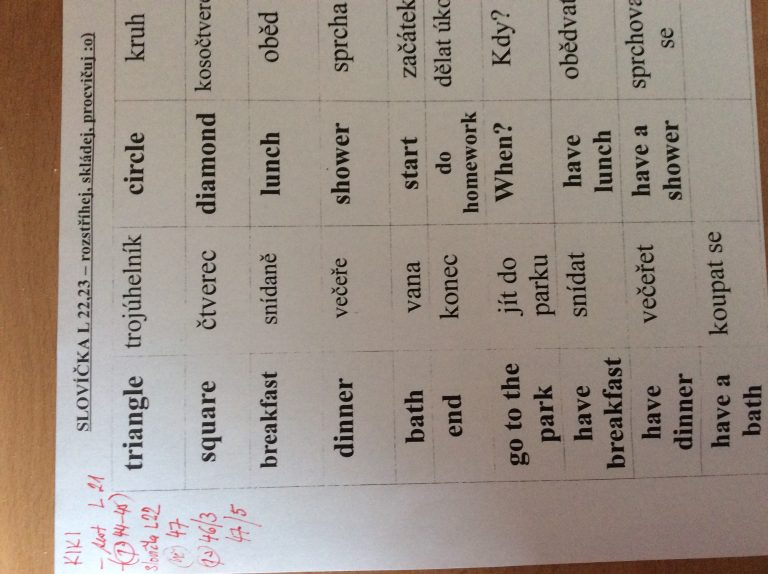 KIKI
L 21
44-45
L22
47
46/3
47/5
SLOVÍČKA L 22,23 – rozstříhej, skládej, procvičuj :o)
triangle trojúhelník circle kruh
square čtverec diamond
breakfast snídaně lunch oběd
dinner večeře shower sprcha
bath vana start začátek
end konec do homework dělat
go to the park jít do parku When? Kdy?
have breakfast snídat have lunch
have dinner večeřet have a shower se
have a bath koupat se